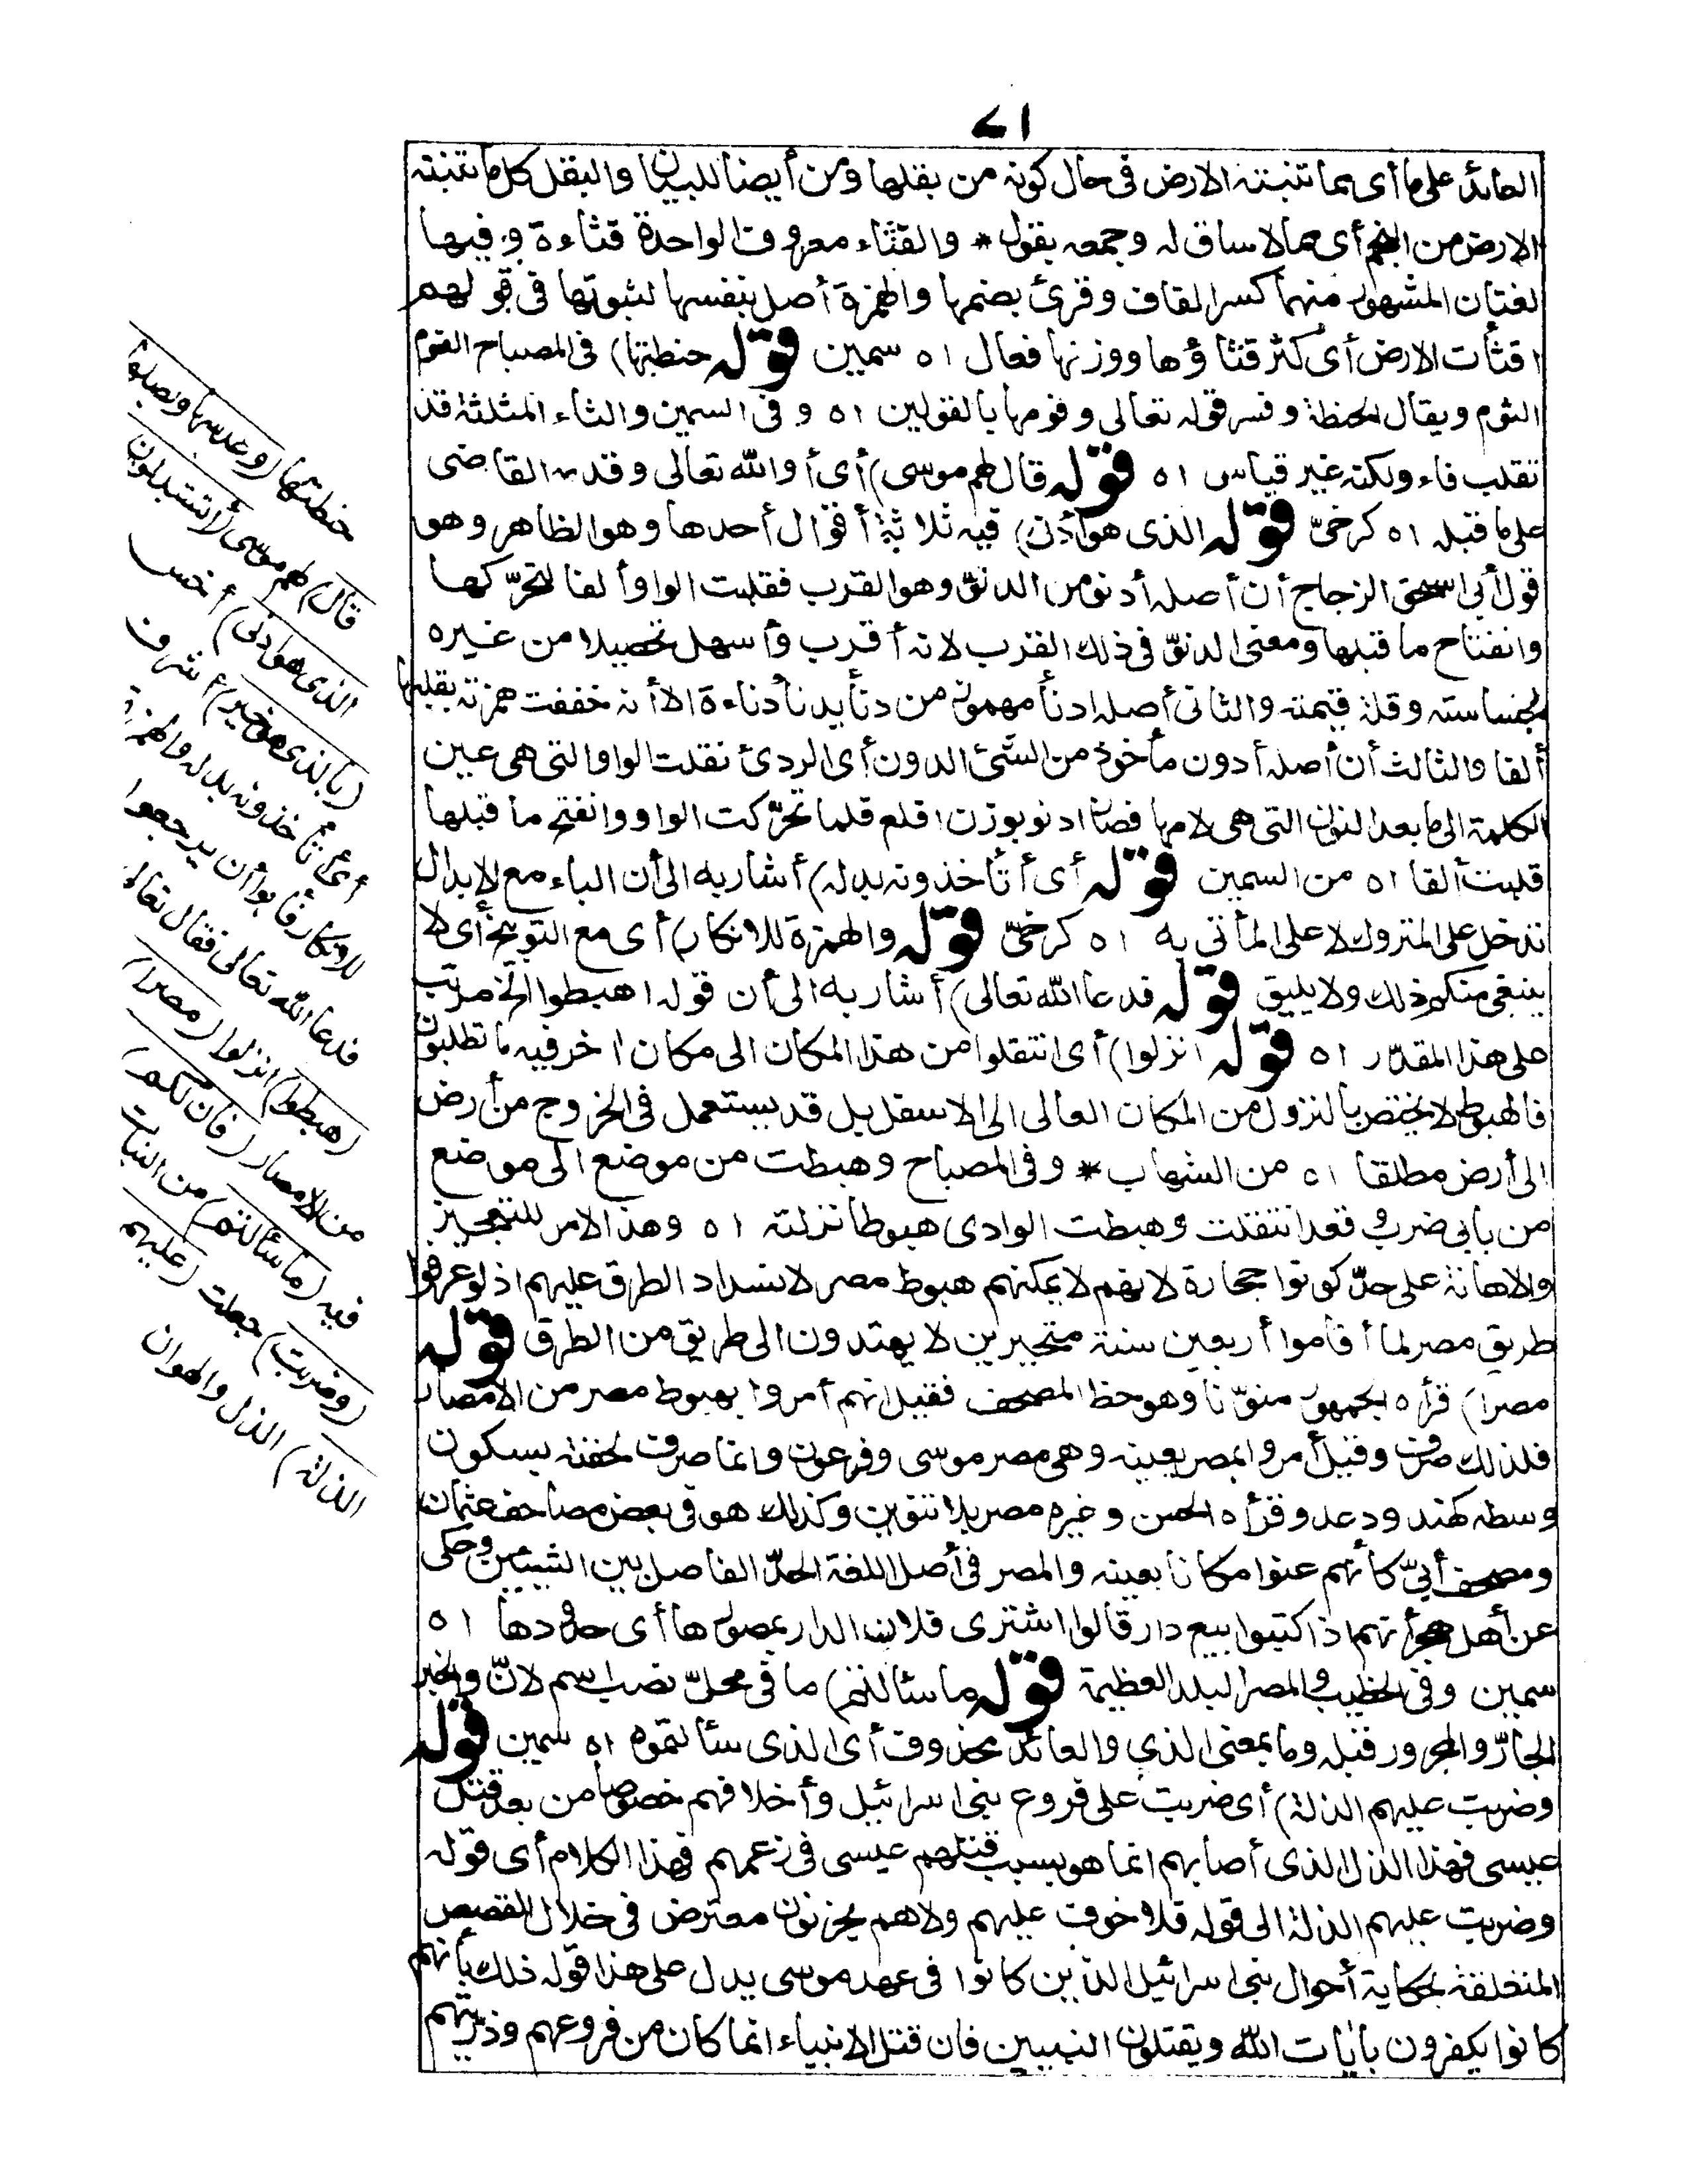 ٧١
العائد على ما أى مما تنبته الارض فى حال كونه من بقلها ومن أيضا للبيان والبقل كل ما تنبته
الارض من النجم أى مما لا ساق له وجمعه بقول * والقثاء معروف الواحدة قثاءة وفيها
لغتان المشهور منهما كسر القاف وقرئ بضمها والهمزة أصل بنفسها لثبوتها فى قولهم
اقثأت الارض أى كثر قثاؤها ووزنها فعال اه سمين قوله حنطتها) فى المصباح الفوم
الثوم ويقال الحنطة وفسر قوله تعالى وفومها بالقولين اه وفى السمين والثاء المثلثة قد
تقلب فاء ولكنه غير قياس اه قوله قال لهم موسى) أى أو الله تعالى وقدمه القاضى
على ما قبله اه كرخىّ قوله الذى هو أدنى) فيه ثلاثة أقوال أحدها وهو الظاهر وهو
قول أبى اسحق الزجاج أن أصله أدنو من الدنوّ وهو القرب فقلبت الواو ألفا لتحرّكها
وانفتاح ما قبلها ومعنى الدنوّ فى ذلك القرب لانه أقرب وأسهل تحصيلا من غيره
لخساسته وقلة قيمته والثانى أصله ادنأ مهموز من دنأ يدنأ دناءة الا أنه خففت همزته بقلبها
ألفا والثالث أن أصله أدون مأخوذ من الشئ الدون أى الردئ نقلت الواو التى هى عين
الكلمة الى ما بعد النون التى هى لامها فصار ادنو بوزن اقلع فلما تحرّكت الواو وانفتح ما قبلها
قلبت ألفا اه من السمين قوله أى أتأخذونه بدله) أشار به الى أن الباء مع الابدال
تدخل على المتروك لا على المأتى به اه كرخىّ قوله والهمزة للانكار) أى مع التوبيخ أى لا
ينبغى منكم ذلك ولا يليق قوله فدعا الله تعالى) أشار به الى أن قوله اهبطوا الخ مرتب
على هذا المقدّر اه قوله انزلوا) أى انتقلوا من هذا المكان الى مكان اخر فيه ما تطلبون
فالهبوط لا يختص بالنزول من المكان العالى الى الاسفل بل قد يستعمل فى الخروج من أرض
الى أرض مطلقا اه من الشهاب * وفى المصباح وهبطت من موضع الى موضع
من بابى ضرب وقعد انتقلت وهبطت الوادى هبوطا نزلته اه وهذا الامر للتعجيز
والاهانة على حدّ كونوا حجارة لانهم لا يمكنهم هبوط مصر لانسداد الطرق عليهم اذ لو عرفوا
طريق مصر لما أقاموا أربعين سنة متحيرين لا يهتدون الى طريق من الطرق قوله
مصرا) قرأه الجمهور منوّنا وهو خط المصحف فقيل انهم أمروا بهبوط مصر من الامصار
فلذلك صرف وقيل أمروا بمصر بعينه وهى مصر موسى وفرعون وانما صرف لخفته بسكون
وسطه كهند ودعد وقرأه الحسن وغيره مصر بلا تنوين وكذلك هو فى بعض مصاحف عثمان
ومصحف أبىّ كأنهم عنوا مكانا بعينه والمصر فى أصل اللغة الحدّ الفاصل بين الشيئين وحكى
عن أهل هجر أنهم اذا كتبوا بيع دار قالوا اشترى فلان الدار بمصورها أى حدودها اه
سمين وفى الخطيب والمصر البلد العظيمة قوله ما سألتم) ما فى محلّ نصب اسم لانّ والخبر
الجارّ والمجرور قبله وما بمعنى الذي والعائد محذوف أى الذى سألتموه اه سمين قوله
وضربت عليهم الذلة) أى ضربت على فروع بنى اسرائيل وأخلافهم خصوصا من بعد قتل
عيسى فهذا الذل الذى أصابهم انما هو بسبب قتلهم عيسى فى زعمهم فهذا الكلام أى قوله
وضربت عليهم الذلة الى قوله فلا خوف عليهم ولا هم يحزنون معترض فى خلال القصص
المتعلقة بحكاية أحوال بنى اسرائيل الذين كانوا فى عهد موسى يدل على هذا قوله ذلك بأنهم
كانوا يكفرون بأيات الله ويقتلون النبيين فان قتل الانبياء انما كان من فروعهم وذريتهم
حنطتها (وعدسها وبصلها
قال) لهم موسى (أتستبدلون
الذى هو ادنى) أخس
(بالذى هو خير) أشرف
أى أتأخذونه بدله والهمزة
للانكار فأبوا أن يرجعوا
فدعا الله تعالى فقال تعالى
(اهبطوا) انزلوا (مصرا)
من الامصار (فان لكم)
فيه (ما سألتم) من النبات
(وضربت) جعلت (عليهم
الذلة) الذل والهوان